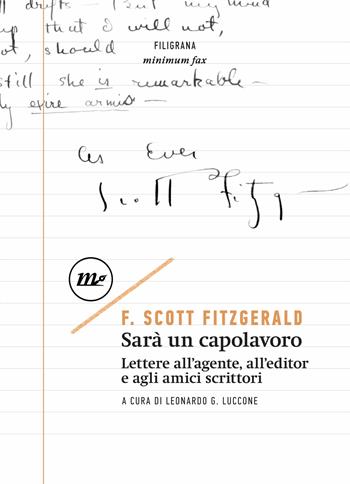 drifts — but my mind
up that I will not,
not, should
FILIGRANA
minimum fax
still she is remarkable —
As Ever
Scott Fitzg
m
F. SCOTT FITZGERALD
Sarà un capolavoro
Lettere all'agente, all'editor
e agli amici scrittori
A CURA DI LEONARDO G. LUCCONE